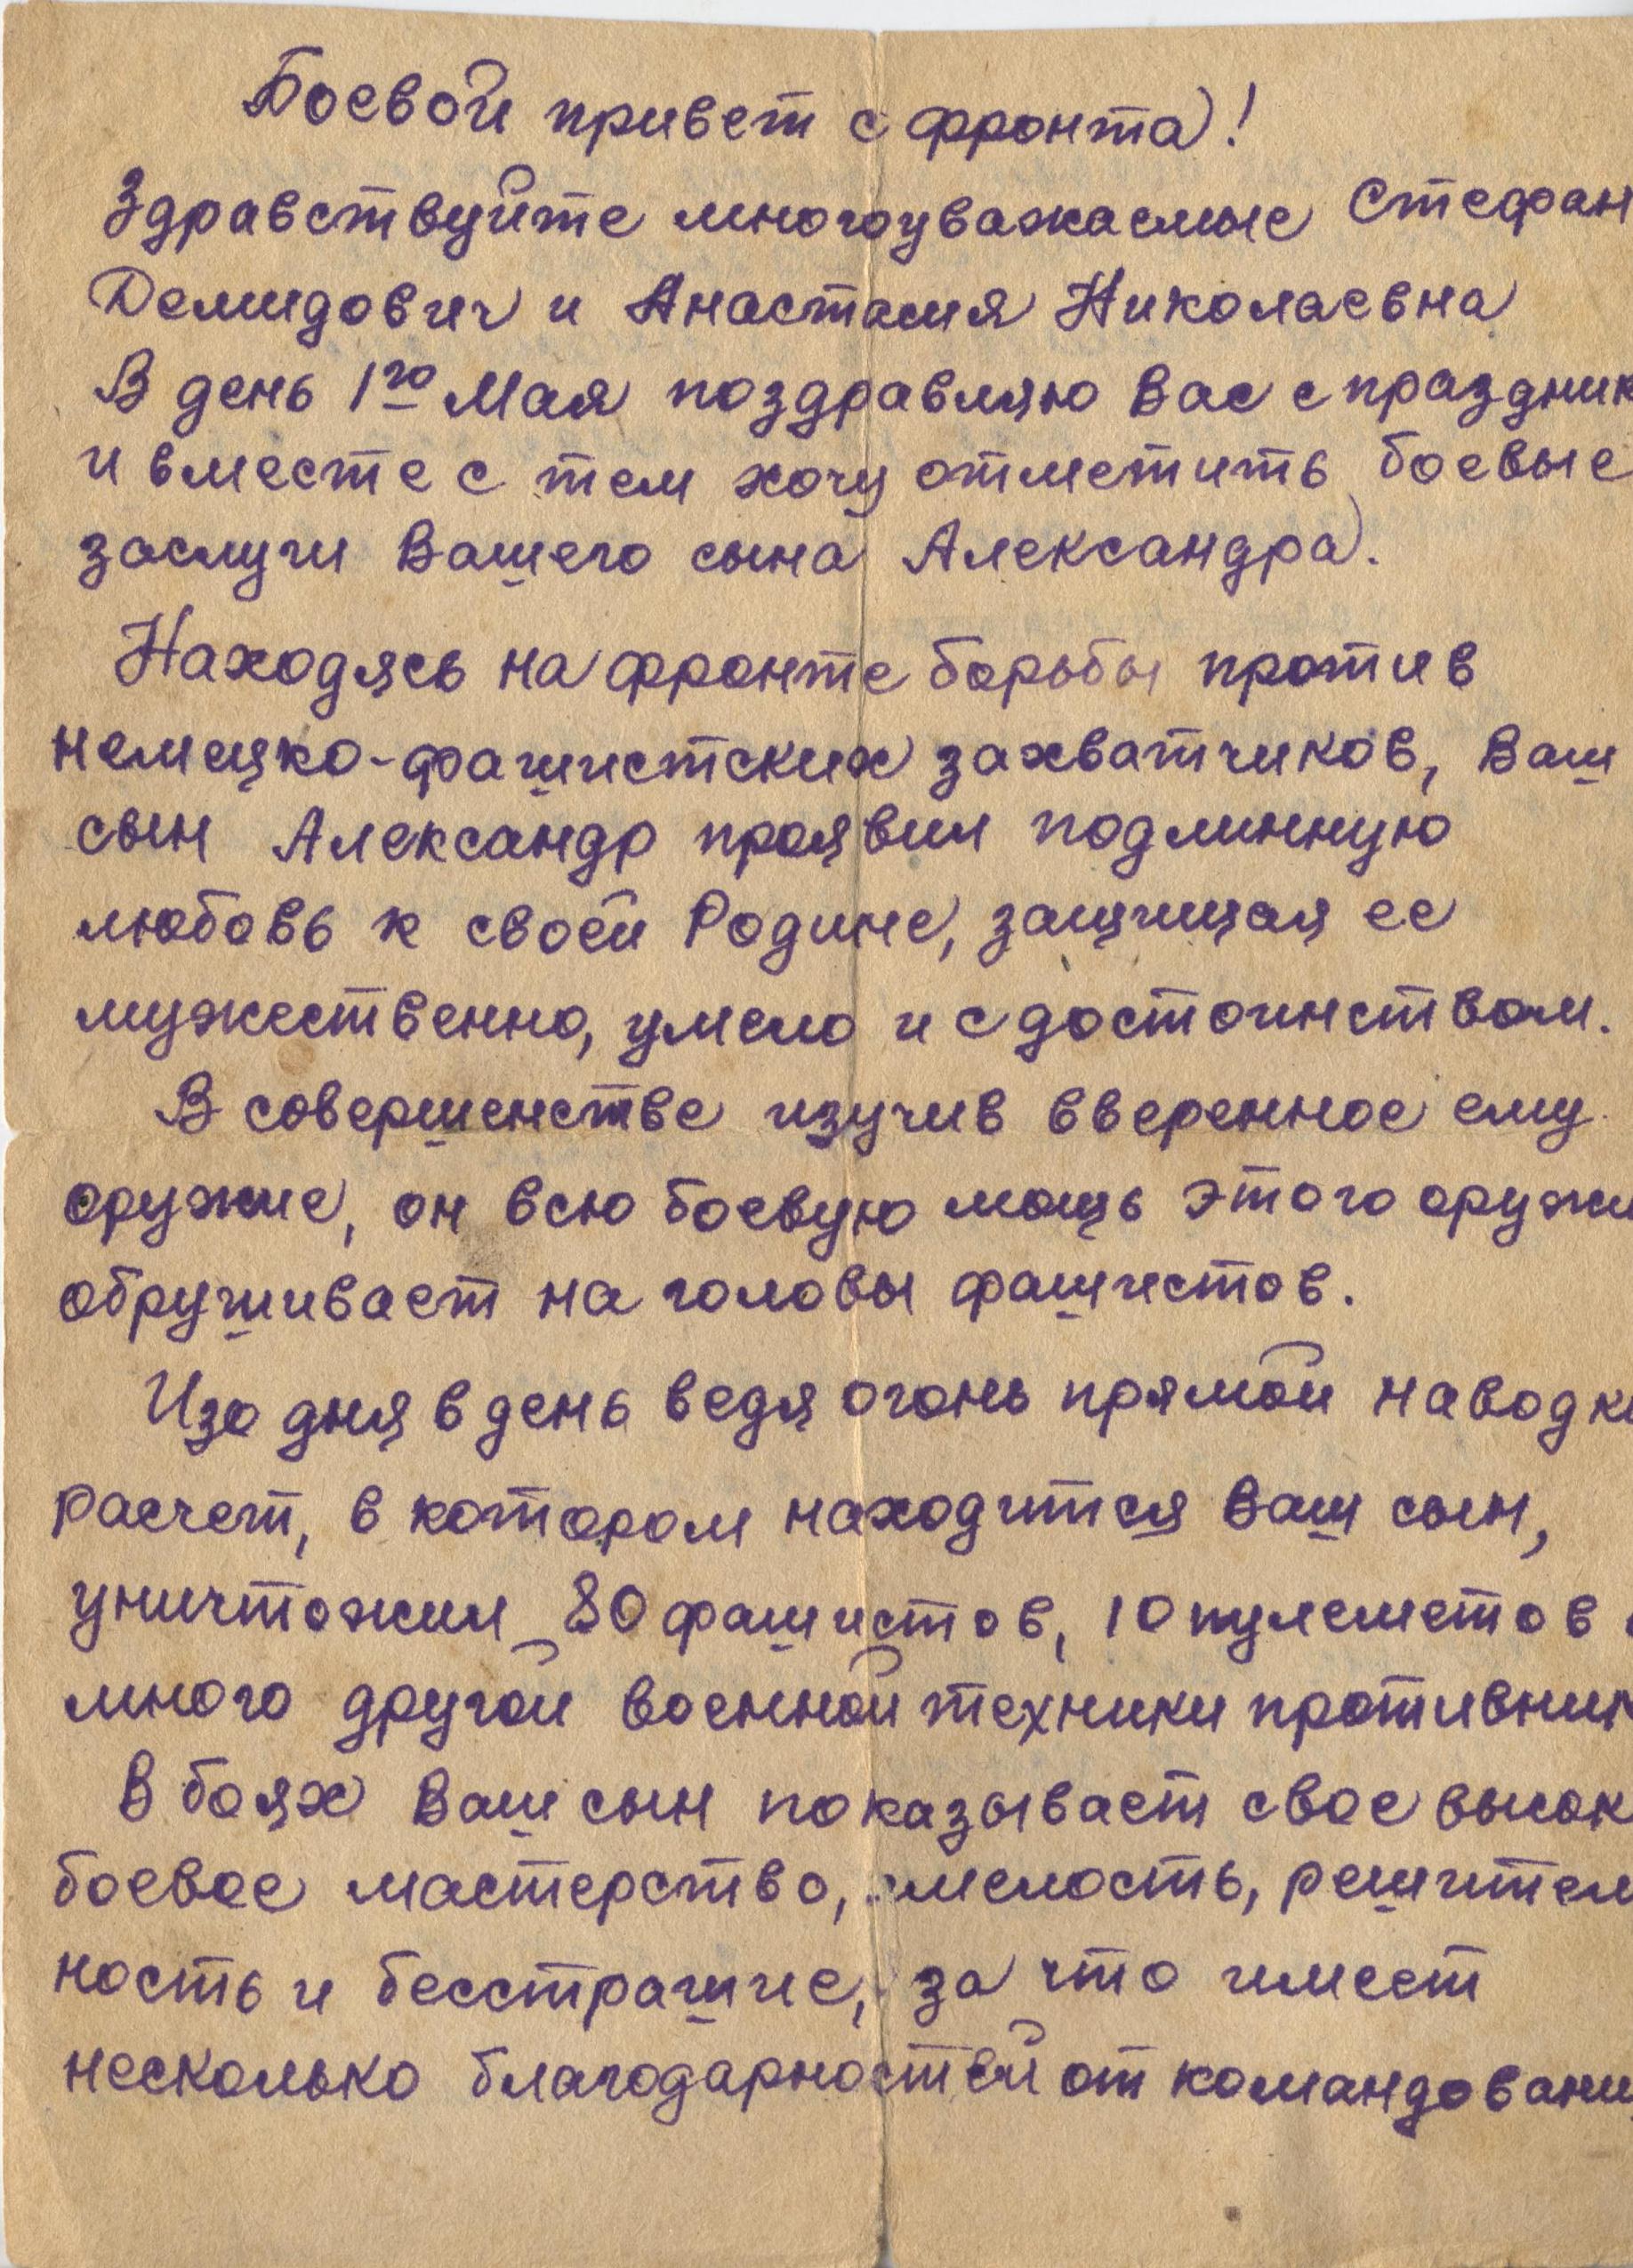 Боевой привет с фронта!
Здравствуйте многоуважаемые Стефан
Демидович и Анастасия Николаевна
В день 1го Мая поздравляю Вас с праздник
и вместе с тем хочу отметить боевые
заслуги Вашего сына Александра.
Находясь на фронте борьбы против
немецко-фашистских захватчиков, Ваш
сын Александр проявил подлинную
любовь к своей Родине, защищая ее
мужественно, умело и с достоинством.
В совершенстве изучив вверенное ему
оружие, он всю боевую мощь этого оружи
обрушивает на головы фашистов.
Изо дня в день ведя огонь прямой наводк
расчет, в котором находится Ваш сын,
уничтожил 80 фашистов, 10 пулеметов
много другой военной техники противник
В боях Ваш сын показывает свое высок
боевое мастерство, смелость, решитель
ность и бесстрашие, за что имеет
несколько благодарностей от командовани